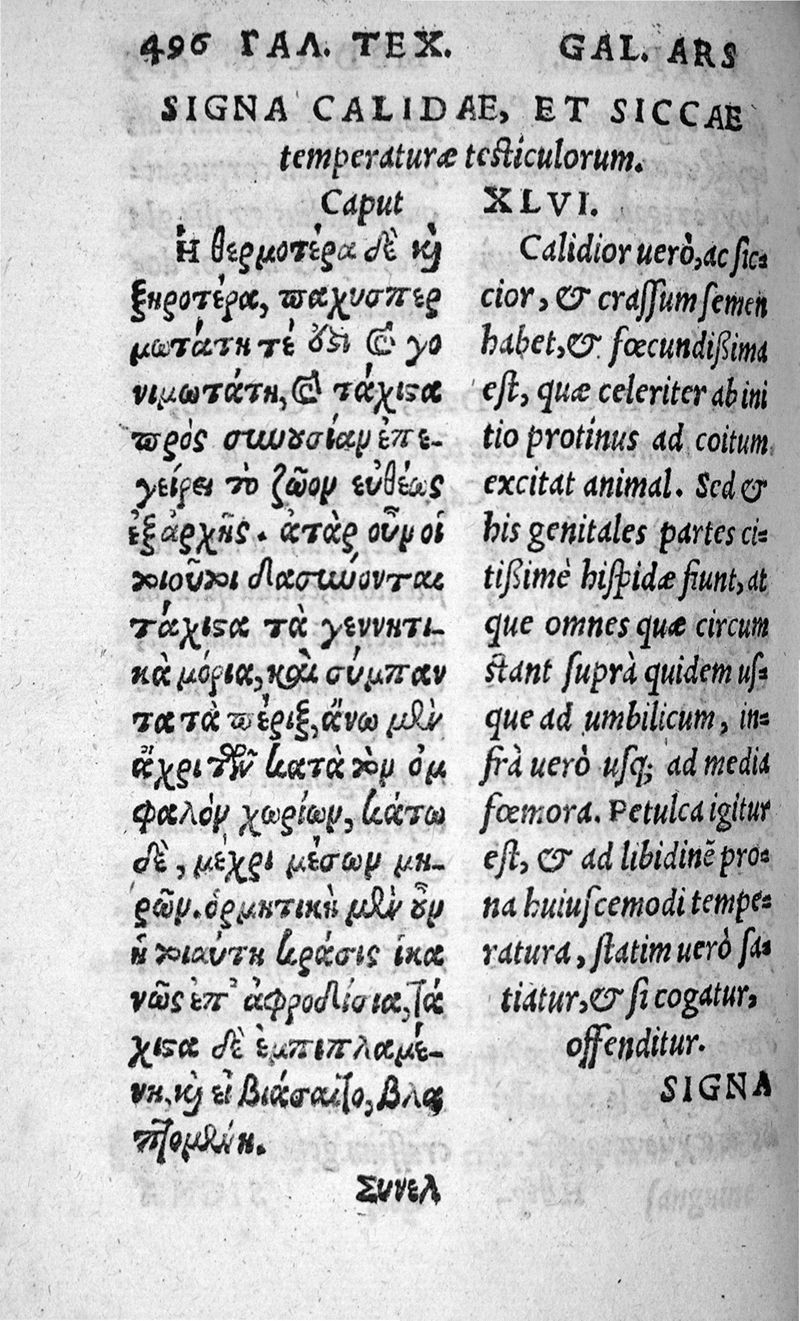 496 ΓΑΛ. ΤΕΧ. GAL. ARS
SIGNA CALIDAE, ET SICCAE
temperaturæ testiculorum.
Caput XLVI.
Η θερμοτέρα δὲ καὶ
ξηροτέρα, παχυσπερ
μωτάτη τέ ὅτι καὶ γο
νιμωτάτη, καὶ τάχιστα
πρὸς συνουσίαν ἐπε-
γείρει τὸ ζῶον εὐθέως
ἐξ ἀρχῆς. ἀτὰρ οὖν οἱ
τοιοῦτοι δασύνονται
τάχιστα τὰ γεννητι-
κὰ μόρια, καὶ σύμπαν
τα τὰ πέριξ, ἄνω μὲν
ἄχρι τῶν κατὰ τὸν ὀμ
φαλὸν χωρίων, κάτω
δὲ, μέχρι μέσων μη-
ρῶν. ὁρμητικὴ μὲν οὖν
ἡ τοιαύτη κρᾶσις ἱκα
νῶς ἐπ' ἀφροδίσια, τά
χιστα δὲ ἐμπιπλαμέ-
νη, καὶ εἰ βιάσαιτο, βλα
πτομένη.
Συνελ
Calidior uerò, ac sic=
cior, & crassum semen
habet, & fœcundißima
est, quæ celeriter ab ini
tio protinus ad coitum
excitat animal. Sed &
his genitales partes ci=
tißimè hispidæ fiunt, at
que omnes quæ circum
stant suprà quidem us=
que ad umbilicum, in=
frà uerò usq; ad media
fœmora. Petulca igitur
est, & ad libidinē pro=
na huiuscemodi tempe=
ratura, statim uerò sa=
tiatur, & si cogatur,
offenditur.
SIGNA